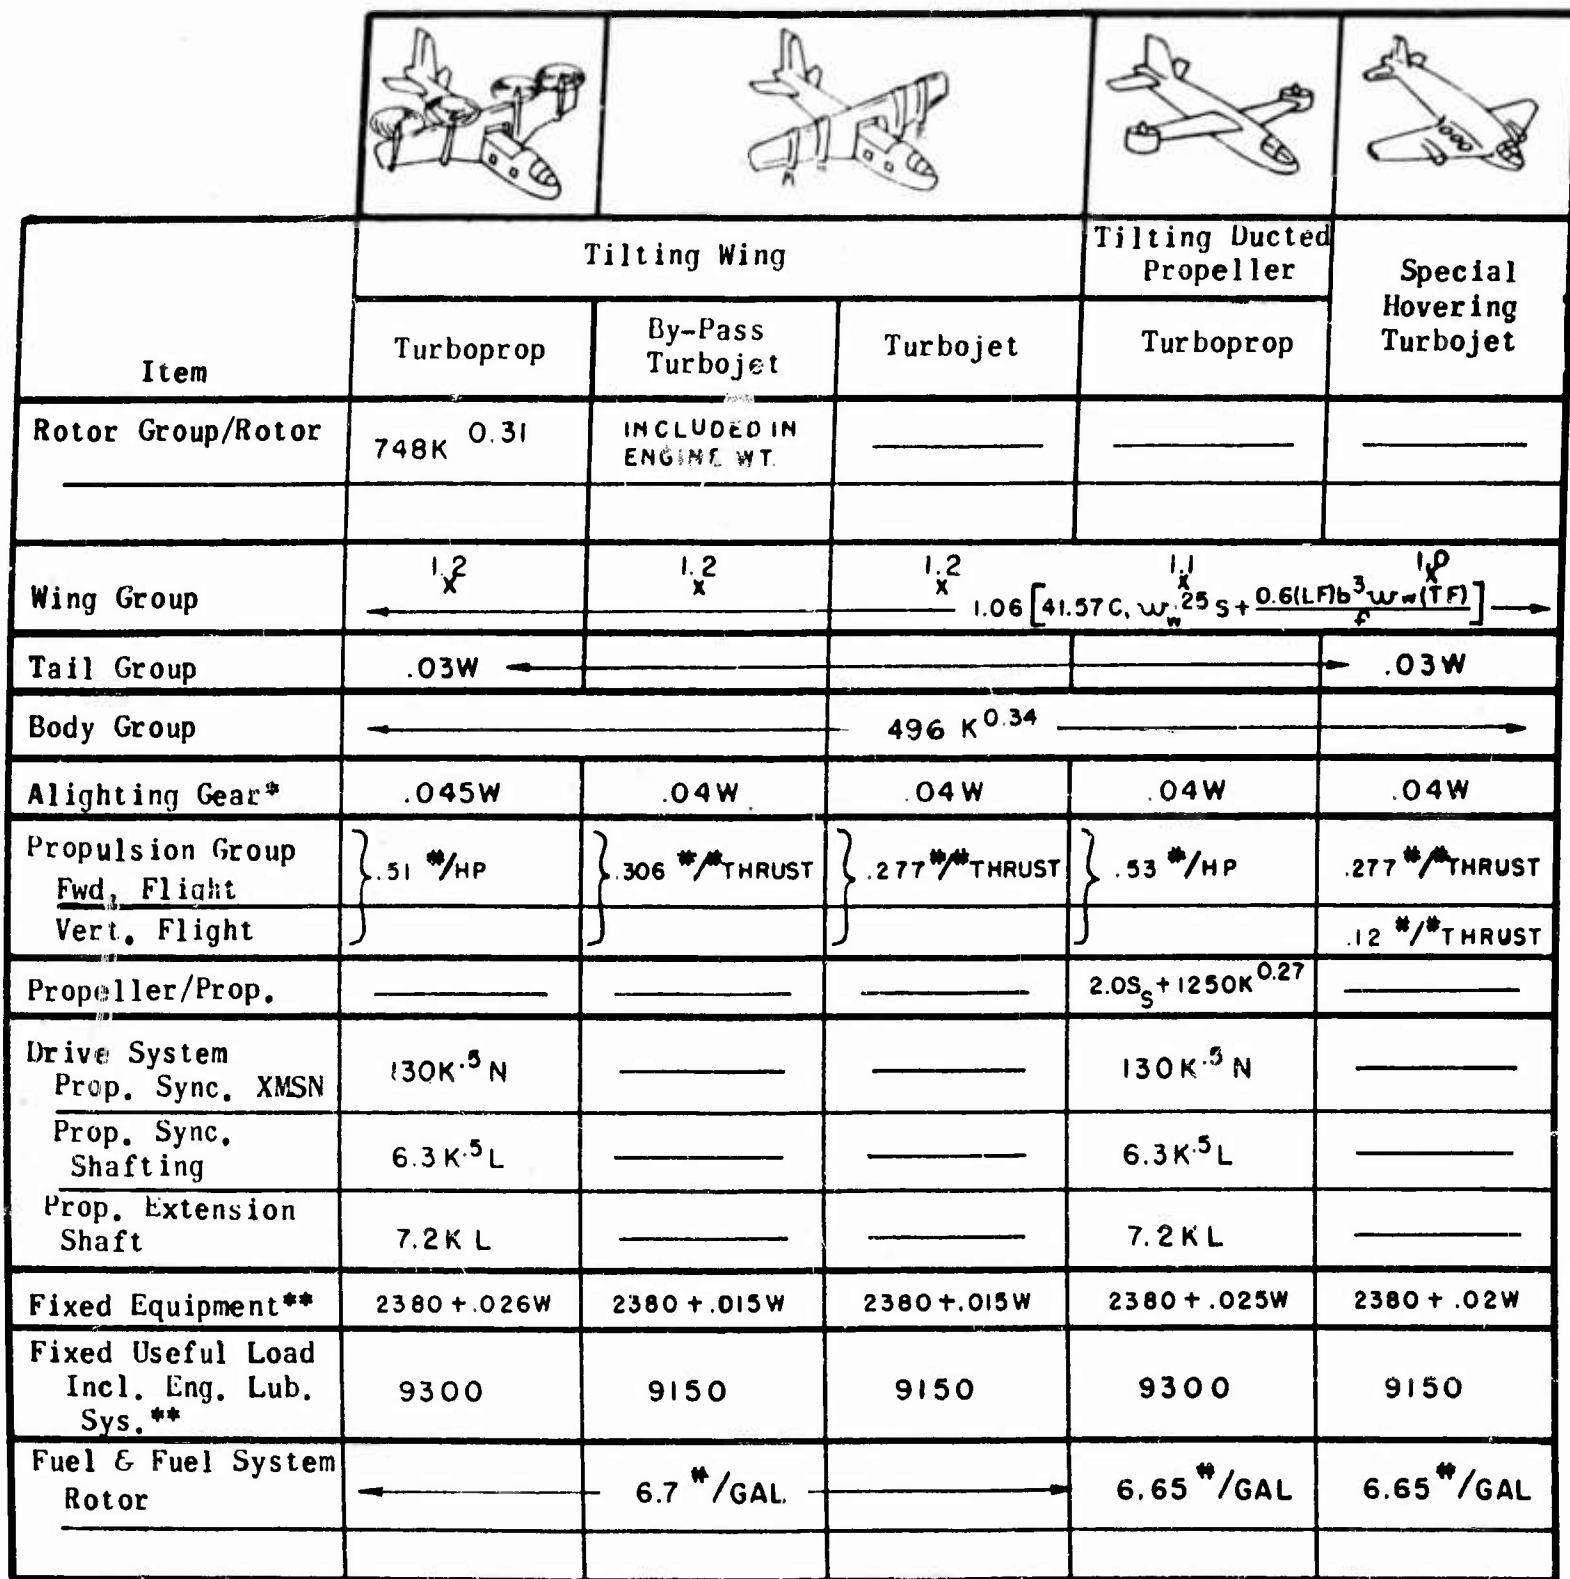 Tilting Wing
Tilting Ducted
Propeller
Special
Hovering
Turbojet
Item
Turboprop
By-Pass
Turbojet
Turbojet
Turboprop
Rotor Group/Rotor
748K 0.31
INCLUDED IN
ENGINE WT.
Wing Group
1.2
x
1.2
x
1.2
x
1.1
x
1.0
x
1.06 [41.57C, w_w^.25 S + 0.6(LF)b^3 w_w(TF) / f]
Tail Group .03W .03W
Body Group 496 K^0.34
Alighting Gear* .045W .04W .04W .04W .04W
Propulsion Group
Fwd. Flight
.51 #/HP .306 #/#THRUST .277 #/#THRUST .53 #/HP .277 #/#THRUST
Vert. Flight .12 #/#THRUST
Propeller/Prop. 2.0S_S + 1250K^0.27
Drive System
Prop. Sync. XMSN 130K^.5 N 130K^.5 N
Prop. Sync.
Shafting 6.3K^.5 L 6.3K^.5 L
Prop. Extension
Shaft 7.2K L 7.2KL
Fixed Equipment** 2380 + .026W 2380 + .015W 2380 + .015W 2380 + .025W 2380 + .02W
Fixed Useful Load
Incl. Eng. Lub.
Sys.**
9300 9150 9150 9300 9150
Fuel & Fuel System
Rotor
6.7 #/GAL. 6.65 #/GAL 6.65 #/GAL